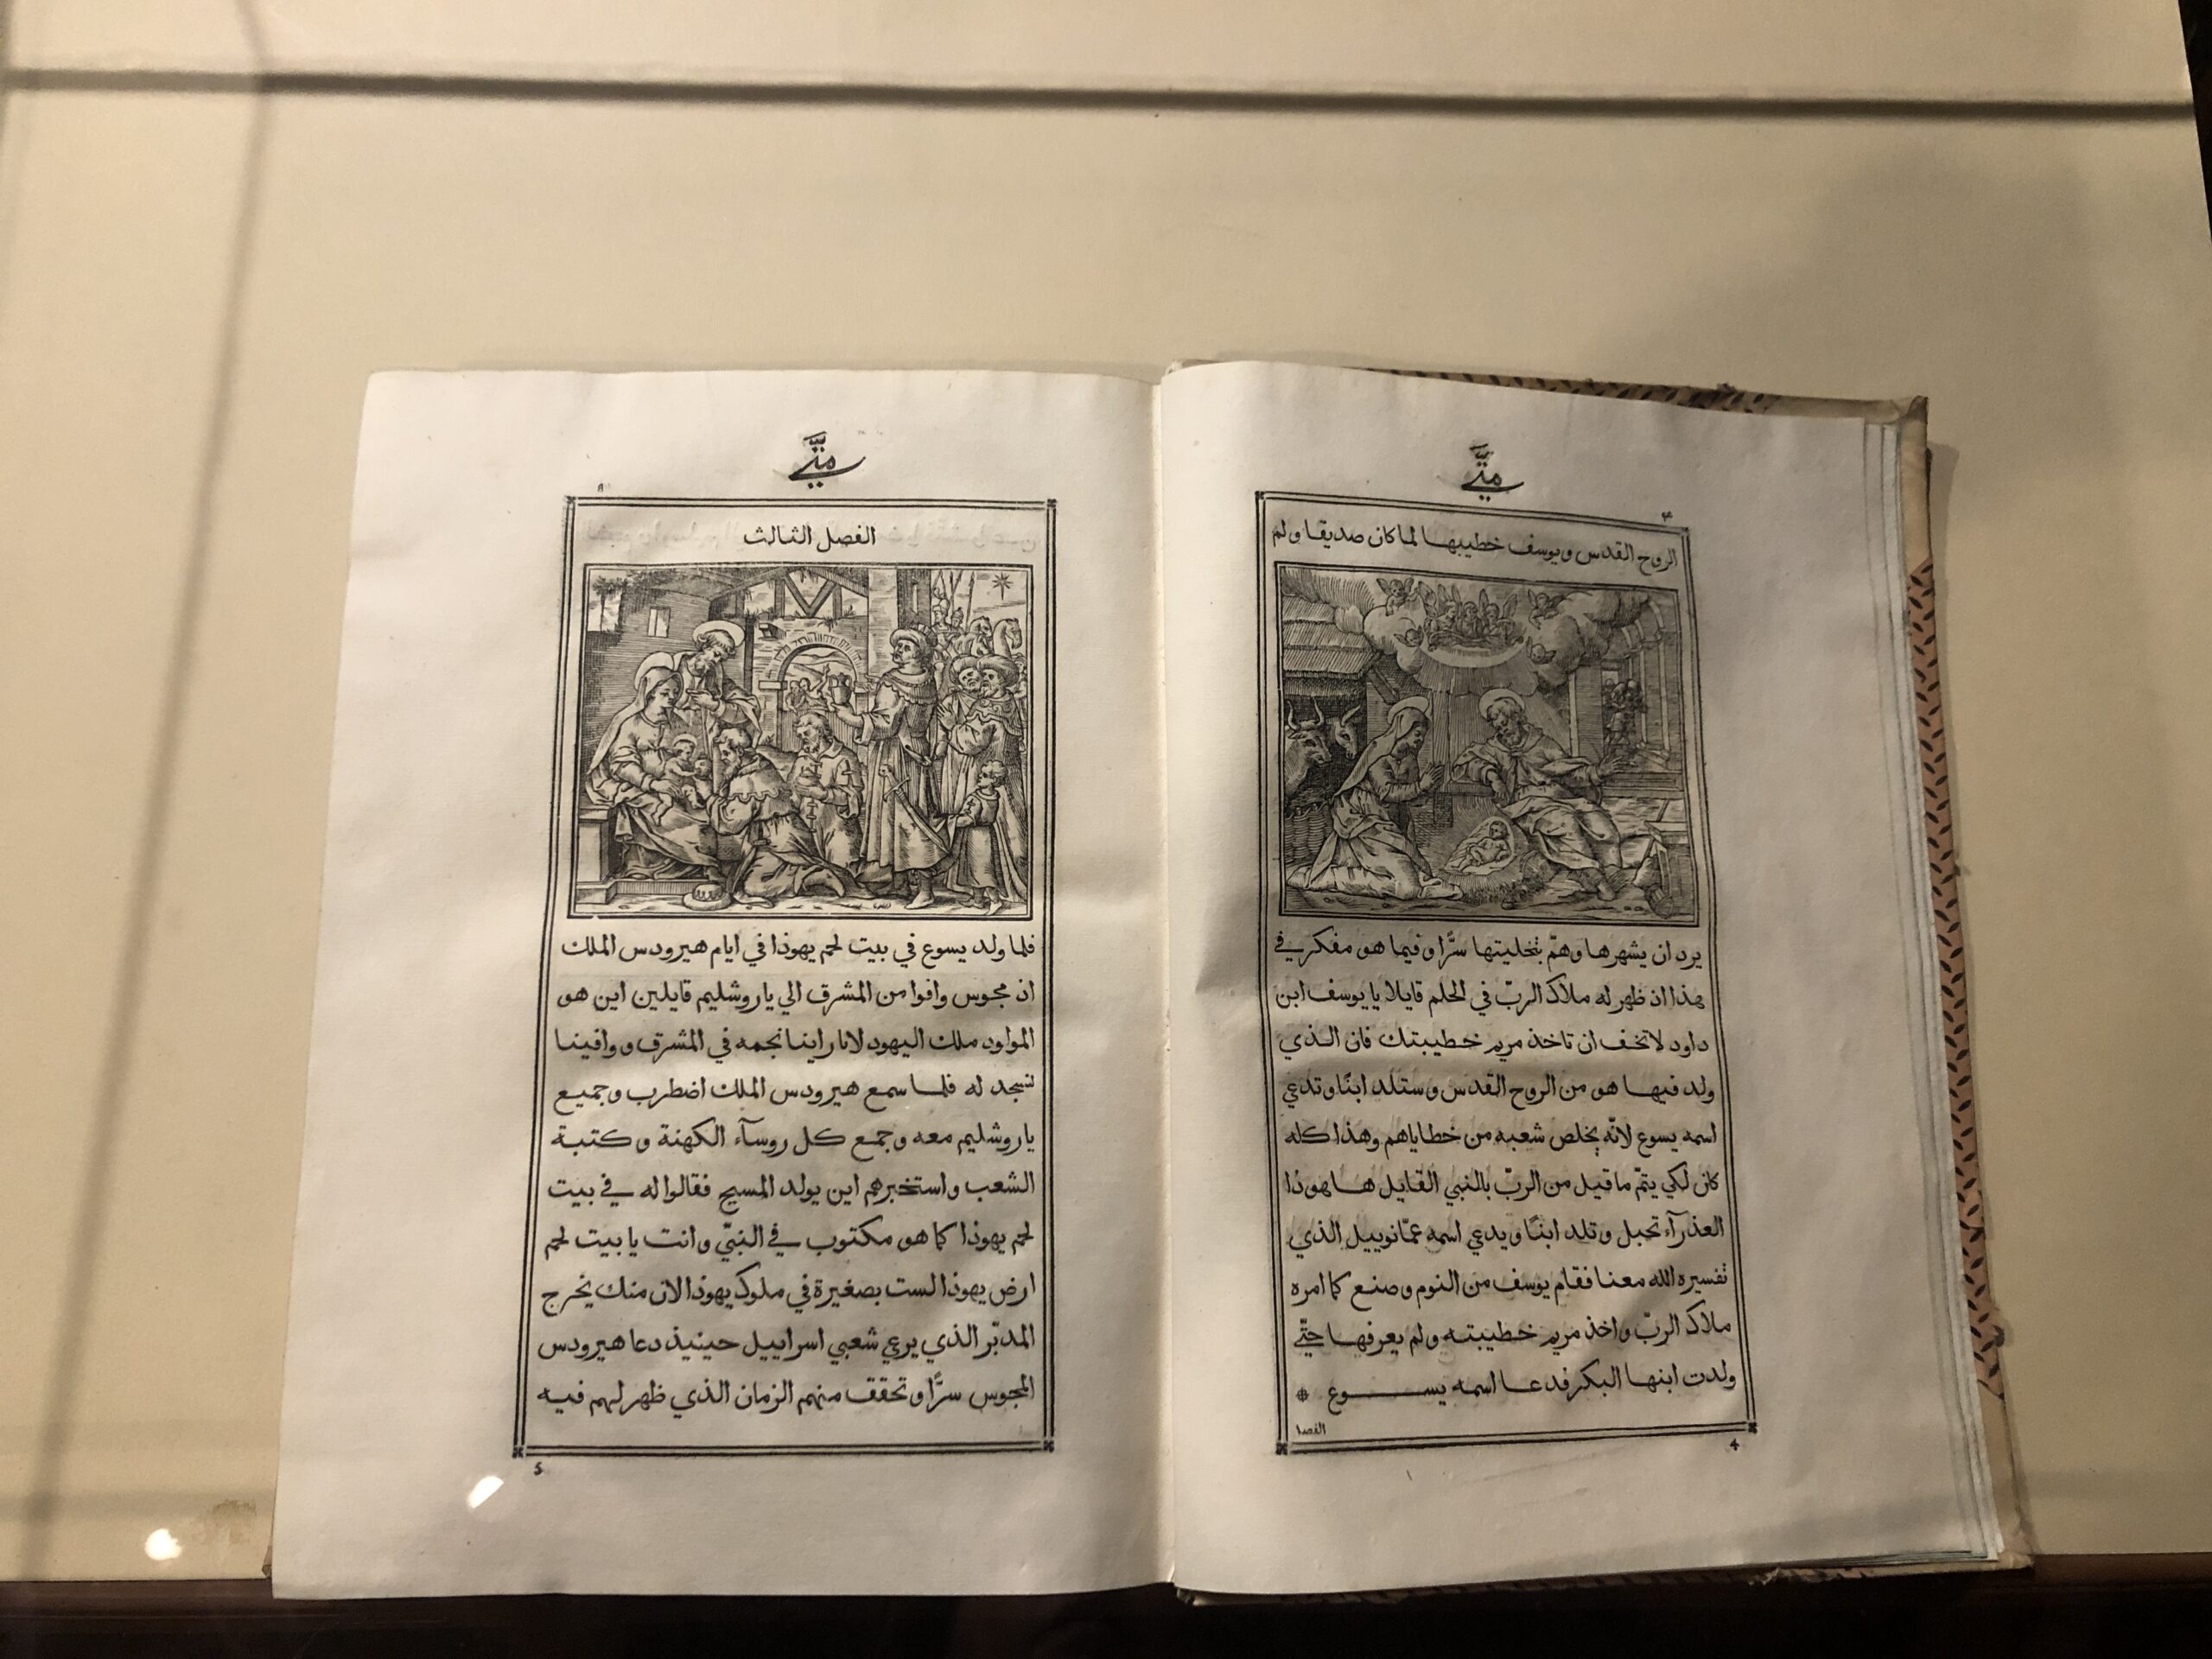 متّي
٣
الروح القدس ويوسف خطيبها لما كان صديقا ولم
يرد ان يشهرها وهمّ بتخليتها سرًّا وفيما هو مفكر في
هذا اذ ظهر له ملاك الربّ في الحلم قايلا يا يوسف ابن
داود لا تخف ان تاخذ مريم خطيبتك فان الذي
ولد فيها هو من الروح القدس وستلد ابنًا وتدعي
اسمه يسوع لانّه يخلص شعبه من خطاياهم وهذا كله
كان لكي يتمّ ما قيل من الربّ بالنبي القايل ها هوذا
العذرآء تحبل وتلد ابنًا ويدعي اسمه عمّانوييل الذي
تفسيره الله معنا فقام يوسف من النوم وصنع كما امره
ملاك الربّ واخذ مريم خطيبته ولم يعرفها حتّي
ولدت ابنها البكر فدعا اسمه يسوع
الفصل
4
متّي
الفصل الثالث
فلما ولد يسوع في بيت لحم يهوذا في ايام هيرودس الملك
اذ مجوس وافوا من المشرق الي ياروشليم قايلين اين هو
المولود ملك اليهود لانا راينا نجمه في المشرق ووافينا
لنسجد له فلما سمع هيرودس الملك اضطرب وجميع
ياروشليم معه وجمع كل روسآء الكهنة وكتبة
الشعب واستخبرهم اين يولد المسيح فقالوا له في بيت
لحم يهوذا كما هو مكتوب في النبيّ وانت يا بيت لحم
ارض يهوذا لست بصغيرة في ملوك يهوذا لان منك يخرج
المدبّر الذي يرعي شعبي اسراييل حينيذ دعا هيرودس
المجوس سرًّا وتحقق منهم الزمان الذي ظهر لهم فيه
5